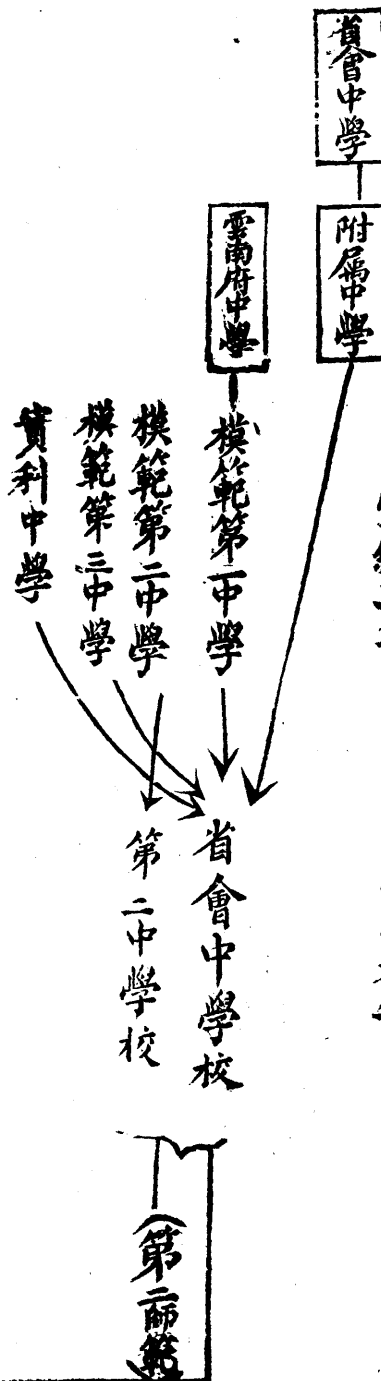 省會中學
附屬中學
雲南府中學
模範第一中學
模範第二中學
模範第三中學
實科中學
省會中學校
第二中學校
（第二師範）